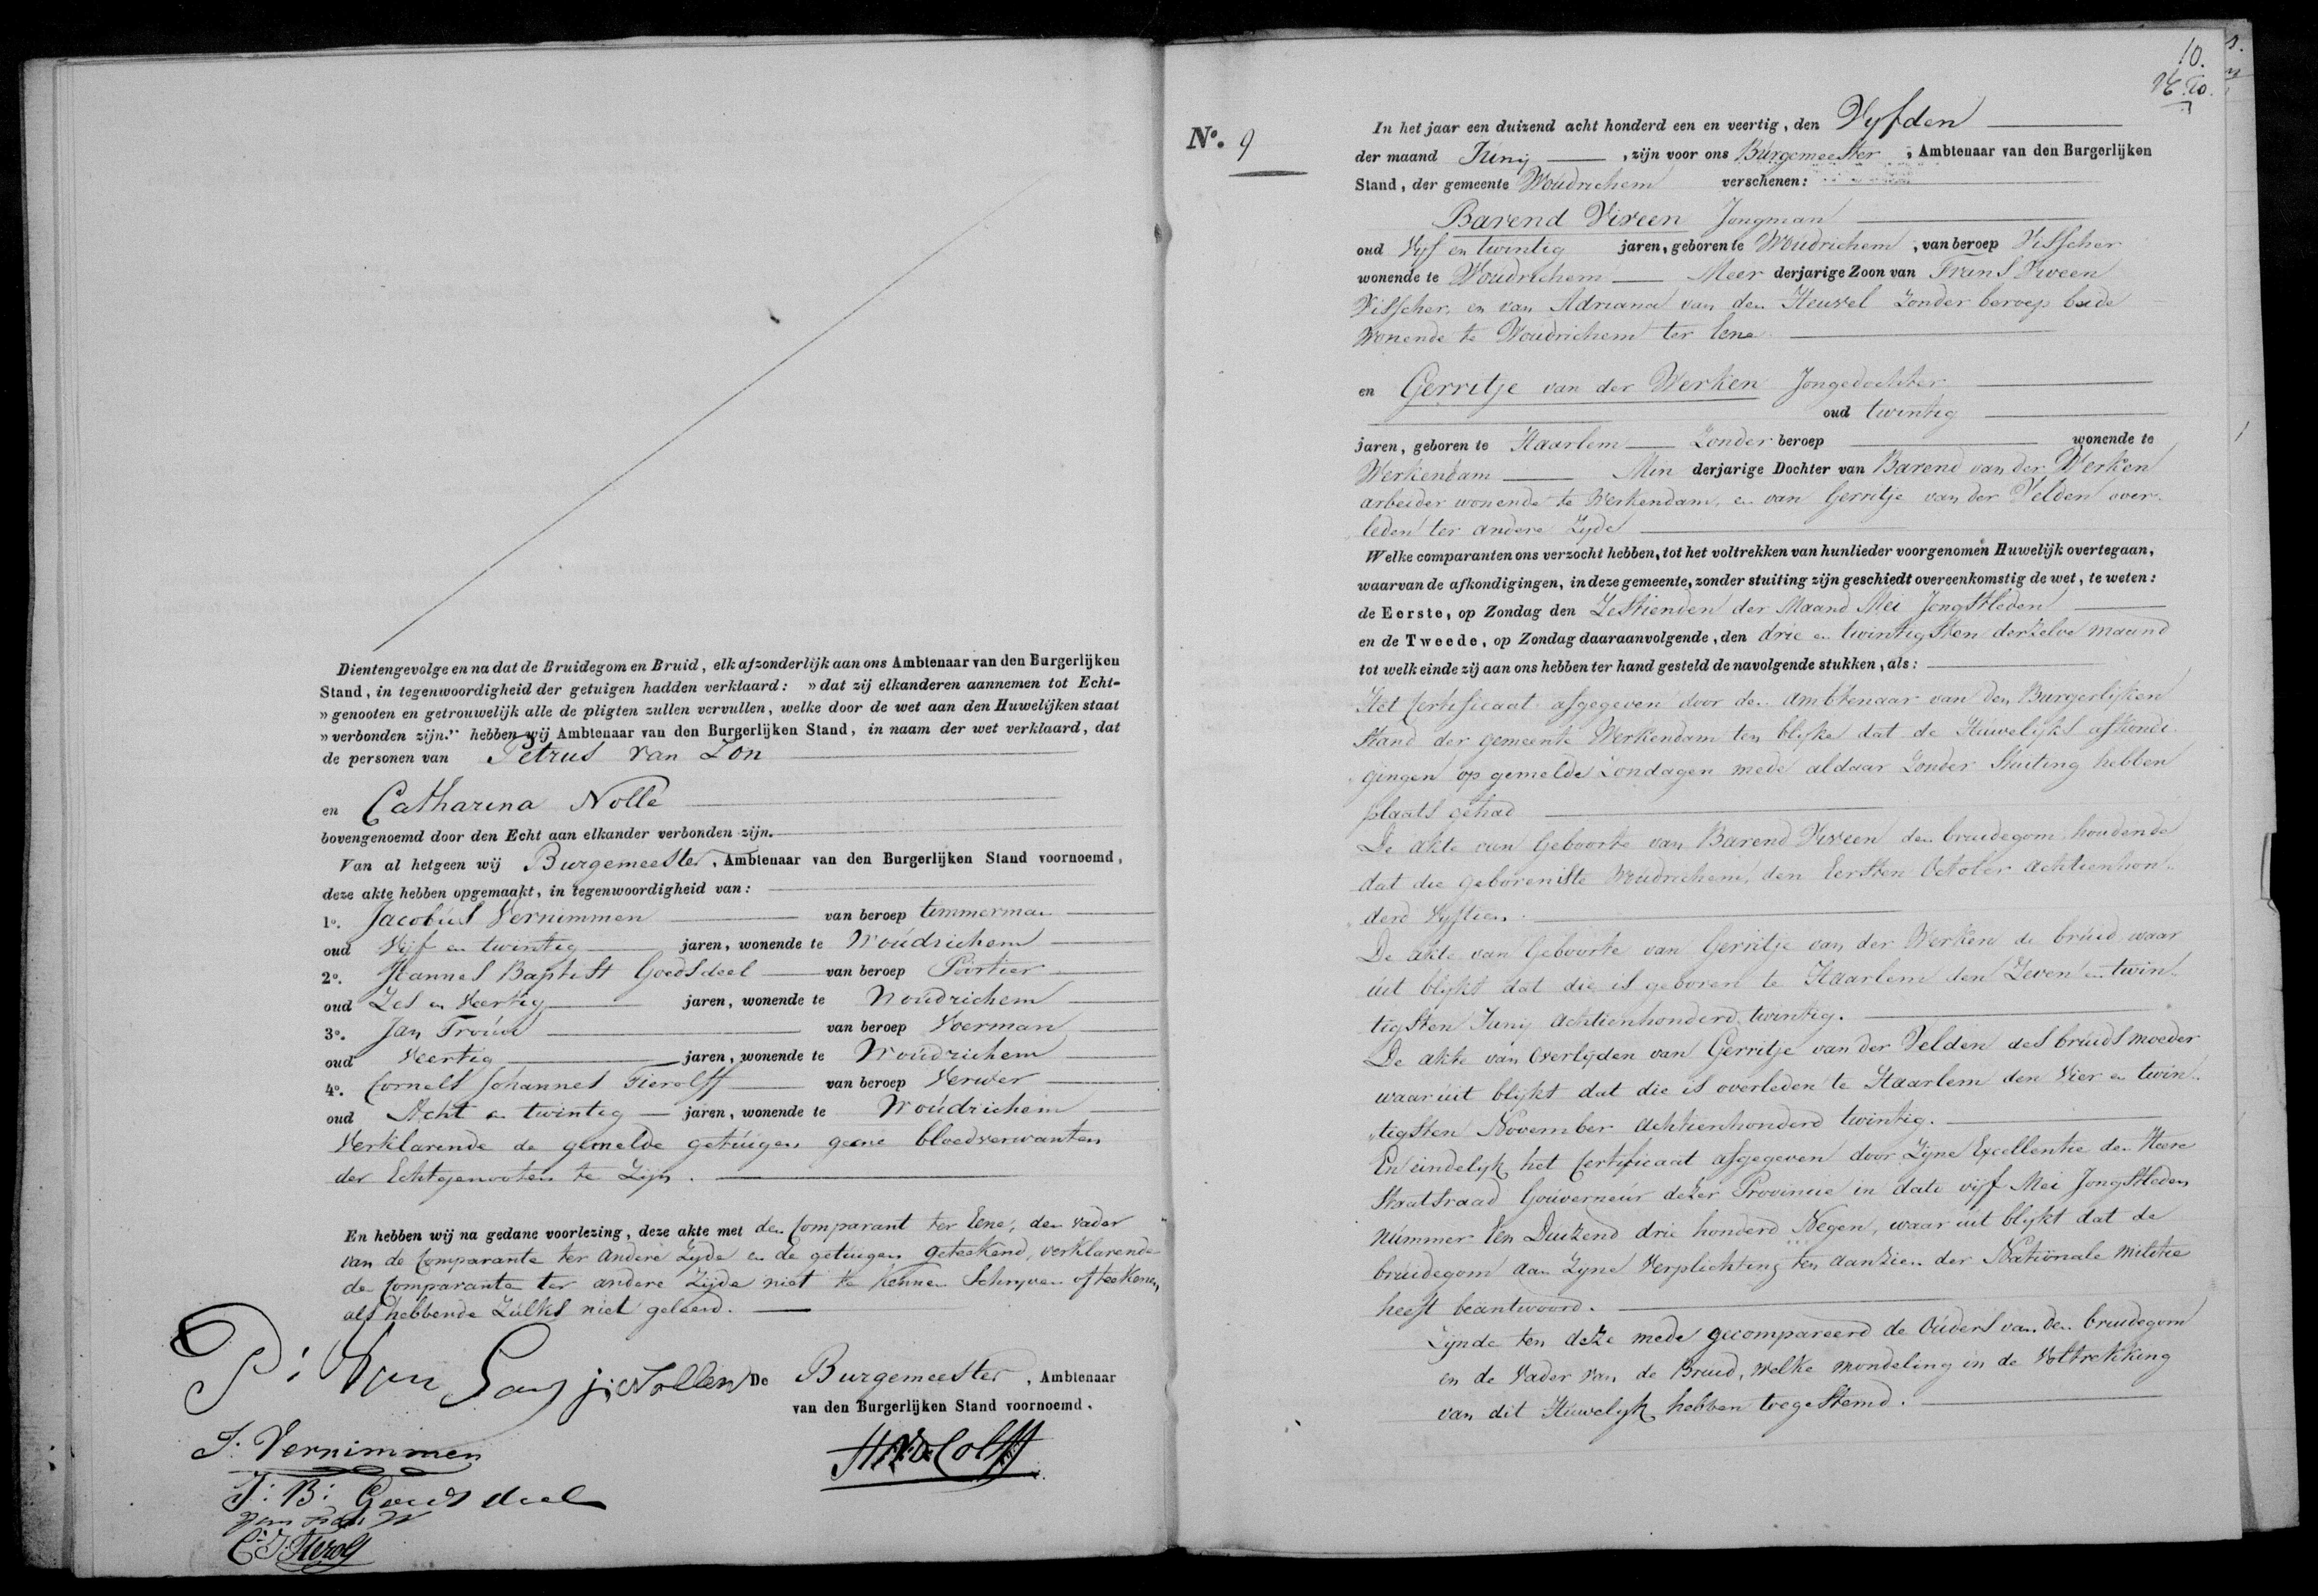 Dientengevolge en na dat de Bruidegom en Bruid, elk afzonderlijk aan ons Ambtenaar van den Burgerlijken
Stand, in tegenwoordigheid der getuigen hadden verklaard: » dat zij elkanderen aannemen tot Echt-
» genooten en getrouwelijk alle de pligten zullen vervullen, welke door de wet aan den Huwelijken staat
» verbonden zijn." hebben wij Ambtenaar van den Burgerlijken Stand, in naam der wet verklaard, dat
de personen van Petrus van Zon
en Catharina Nolle
bovengenoemd door den Echt aan elkander verbonden zijn.
Van al hetgeen wij Burgemeester, Ambtenaar van den Burgerlijken Stand voornoemd,
deze akte hebben opgemaakt, in tegenwoordigheid van:
1o. Jacobús Vernimmen van beroep timmerman
oud Vijf en twintig jaren, wonende te Woúdrichem
2o. Hannes Baptist Goedsdeel van beroep Portier
oud Zes en Veertig jaren, wonende te Woúdrichem
3o. Jan Troúw van beroep Voerman
oud Veertig jaren, wonende te Woúdrichem
4o. Cornels Johannes Fierolff van beroep Verwer
oud Acht en twintig jaren, wonende te Woúdrichem
Verklarende de gemelde getúigen geene bloedverwanten
der Echtgenooten te Zijn.
En hebben wij na gedane voorlezing, deze akte met den Comparant ter Eene, den vader
van de Comparante ter andere Zyde en de getuigen geteekend, verklarende
de Comparante ter andere Zijde niet te kennen Schryven of teekenen,
als hebbende Zulks niet geleerd.
P: Van j: Nollen De Burgemeester, Ambtenaar
van den Burgerlijken Stand voornoemd.
J. Vernimmen
J: B: Goedsdeel
C: J: Fierolf
10.
No. 9
In het jaar een duizend acht honderd een en veertig, den Vyfden
der maand Júnij, zijn voor ons Búrgemeester, Ambtenaar van den Burgerlijken
Stand, der gemeente Woúdrichem verschenen:
Barend Viveen Jongman
oud Vyf en twintig jaren, geboren te Woúdrichem, van beroep Visscher
wonende te Woudrichem Meer derjarige Zoon van Frans Viveen
Visscher, en van Adriana van den Heuvel Zonder beroep beide
Wonende te Woudrichem ter Eene
en Gerritje van der Werken Jongedochter
oud twintig
jaren, geboren te Haarlem Zonder beroep wonende te
Werkendam Min derjarige Dochter van Barend van der Werken
arbeider wonende te Werkendam, en van Gerritje van der Velden over-
leden ter andere Zyde
Welke comparanten ons verzocht hebben, tot het voltrekken van hunlieder voorgenomen Huwelijk overtegaan,
waarvan de afkondigingen, in deze gemeente, zonder stuiting zijn geschiedt overeenkomstig de wet, te weten:
de Eerste, op Zondag den Zestienden der Maand Mei Jongstleden
en de Tweede, op Zondag daaraanvolgende, den drie en twintigsten derzelve maand
tot welk einde zij aan ons hebben ter hand gesteld de navolgende stukken, als:
Het Certificaat afgegeven door den ambtenaar van den Burgerlyken
Stand der gemeente Werkendam ten blyke dat de Húwelijks afkondi-
gingen op gemelde Zondagen mede aldaar Zonder Stuiting hebben
plaats gehad
De akte van Geboorte van Barend Viveen den bruidegom houdende
dat die geboren is te Woudrichem, den Eersten October achttienhon-
derd Vyftien.
De akte van Geboorte van Gerritje van der Werken de brúid waar
úit blykt dat die is geboren te Haarlem den Zeven en twin-
tigsten Júnij achttienhonderd twintig.
De akte ván Overlyden van Gerritje van der Velden des brúids moeder
waar úit blykt dat die is overleden te Haarlem den Vier en twin-
tigsten November achttienhonderd twintig.
En eindelyk het Certificaat afgegeven door Zyne Excellentie den Heere
Staatsraad Goúverneúr dezer Provincie in dato vijf Mei Jongstleden
Númmer Een Duizend drie honderd Negen, waar uit blykt dat de
brúidegom aan Zyne Verplichting ten aanzien der Nationale Militie
heeft beäntwoord.
Zynde ten deze mede gecompareerd de Oúders van den bruidegom
en de Vader van de Bruid, welke mondeling in de Voltrekking
van dit Húwelyk hebben toegestemd.